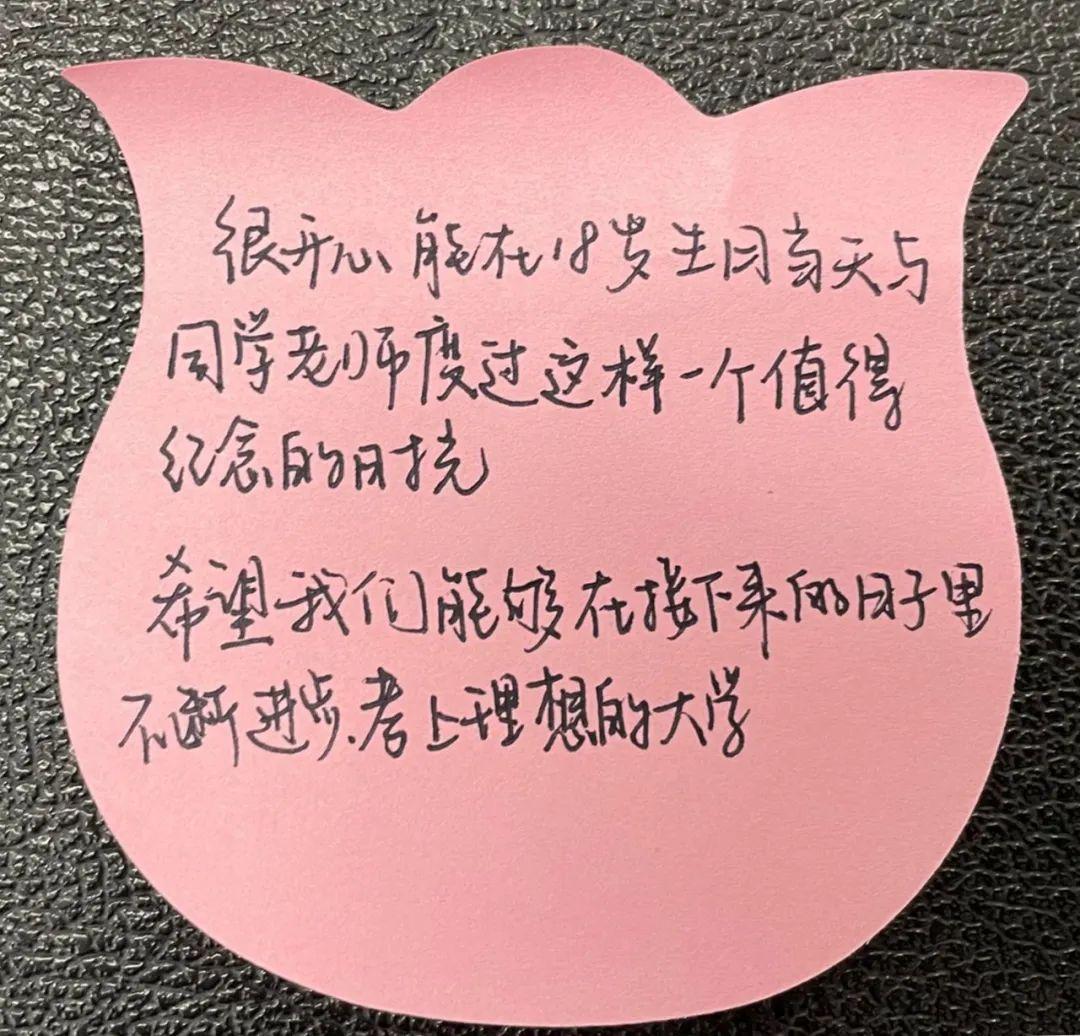 很开心能在18岁生日当天与
同学老师度过这样一个值得
纪念的时光
希望我们能够在接下来的日子里
不断进步.考上理想的大学